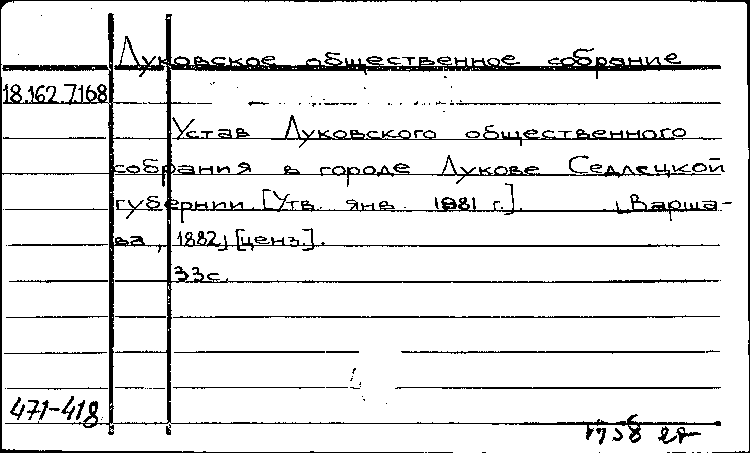 Луковское общественное собрание
18.162.7.168
Устав Луковского общественного
собрания в городе Лукове Седлецкой
губернии. [Утв. янв. 1881 г.]. [Варша-
ва, 1882] [ценз.].
33с.
471-418